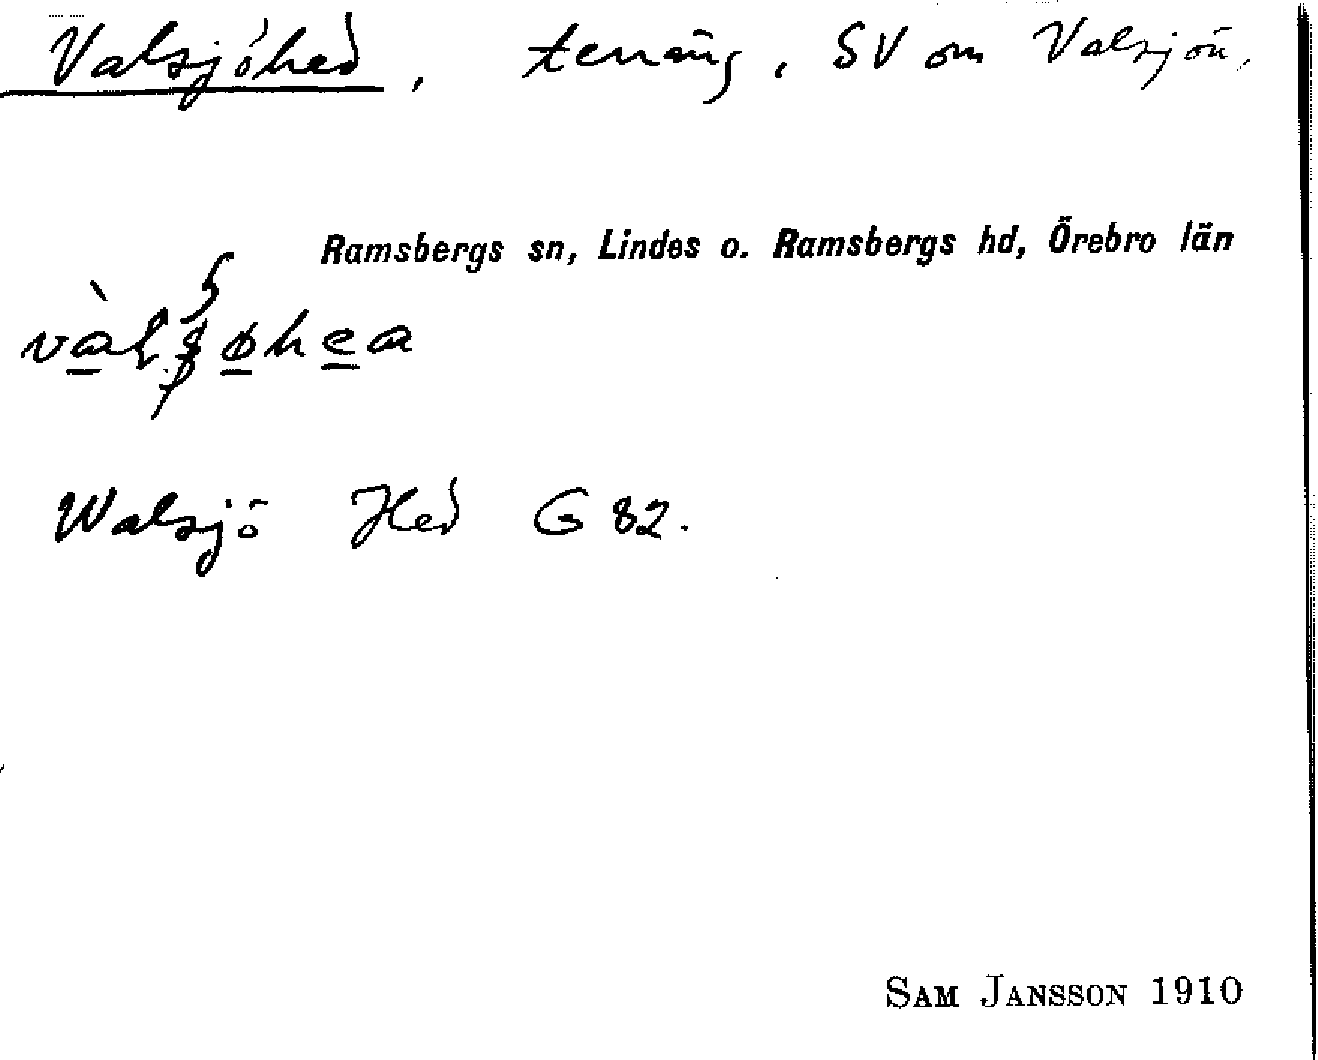 Valsjöhed, terräng, SV om Valsjön.
Ramsbergs sn, Lindes o. Ramsbergs hd, Örebro län
Walsjö Hed G 82.
SAM JANSSON 1910